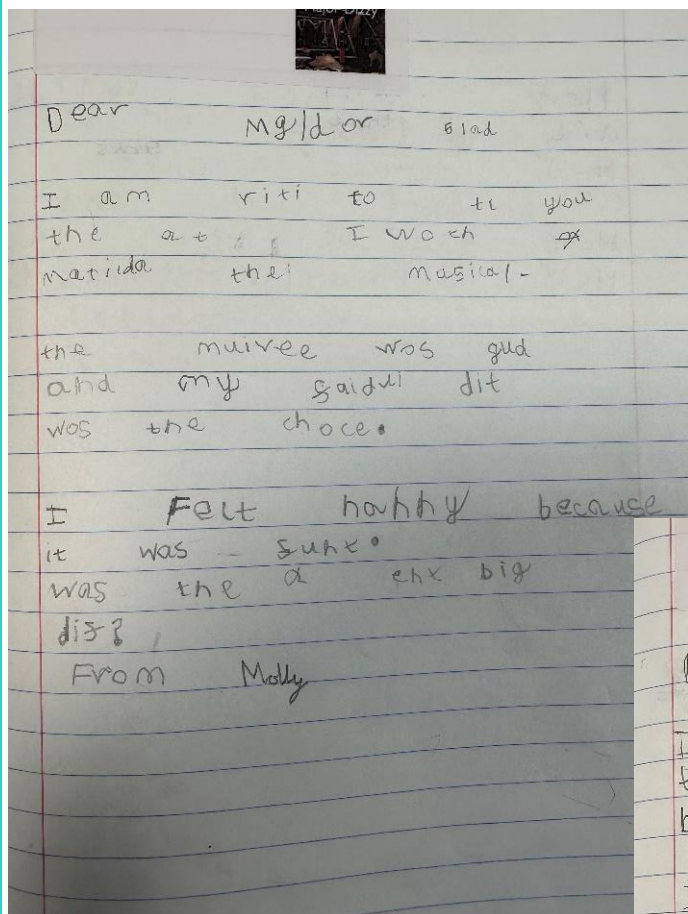 Major Dizzy
Dear Mg/d or slad
I am riti to ti you
the at I woth
Matilda the musical-
the muivee wos gud
and my faidui dit
wos the choce.
I Felt hahhy because
it was funt.
was the a ehx big
dis?
From Molly